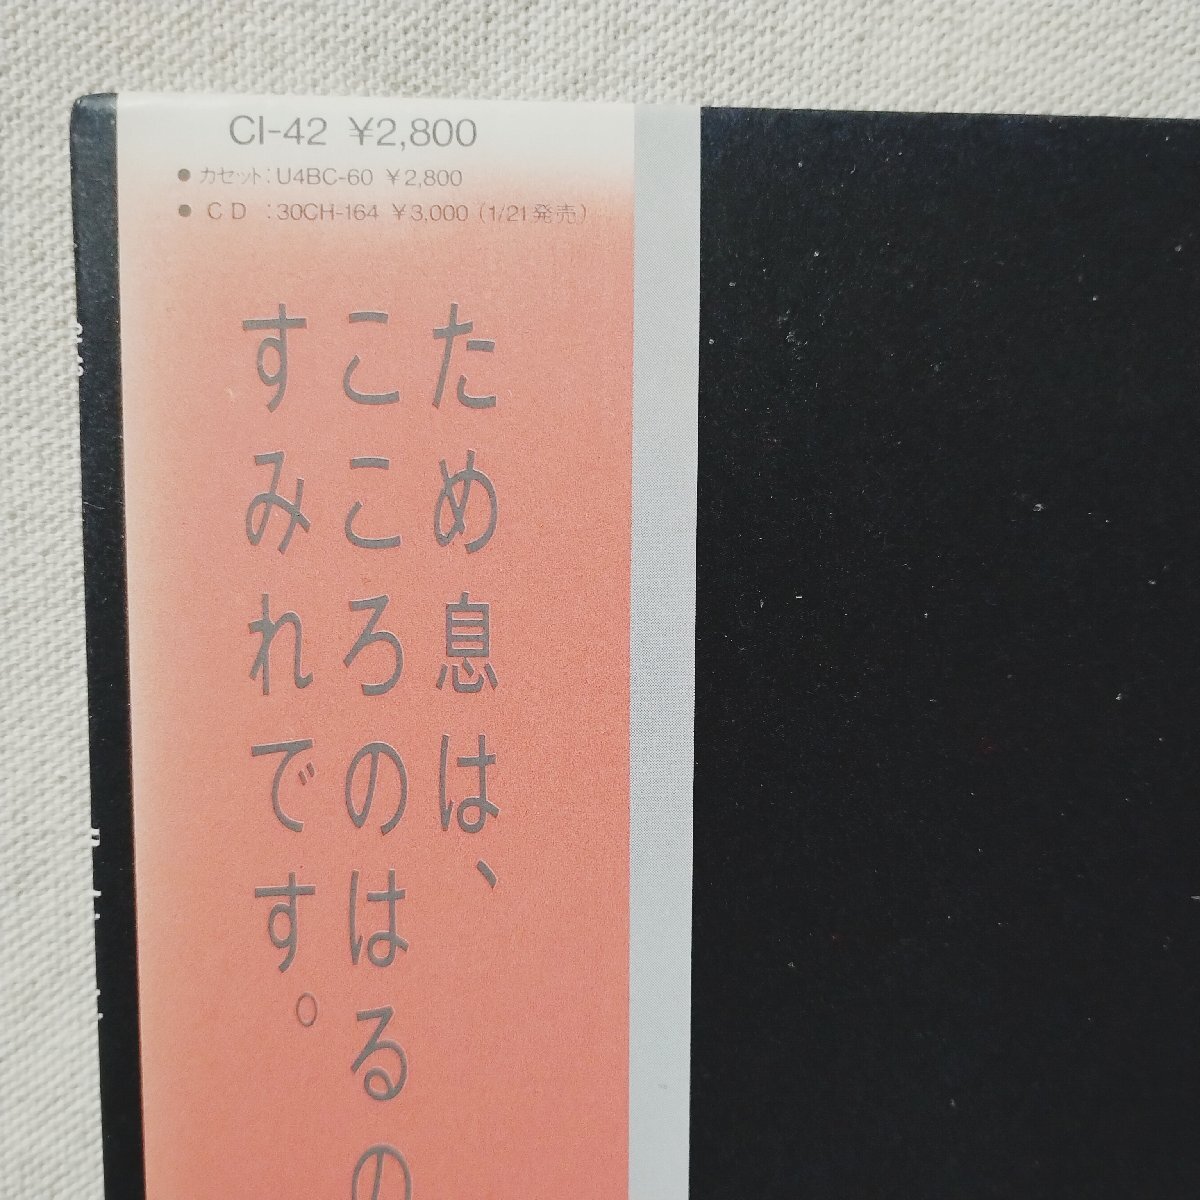 CI-42 ¥2,800
● カセット：U4BC-60 ¥2,800
● CD ：30CH-164 ¥3,000（1/21発売）
ため息は、
こころのはるの
すみれです。